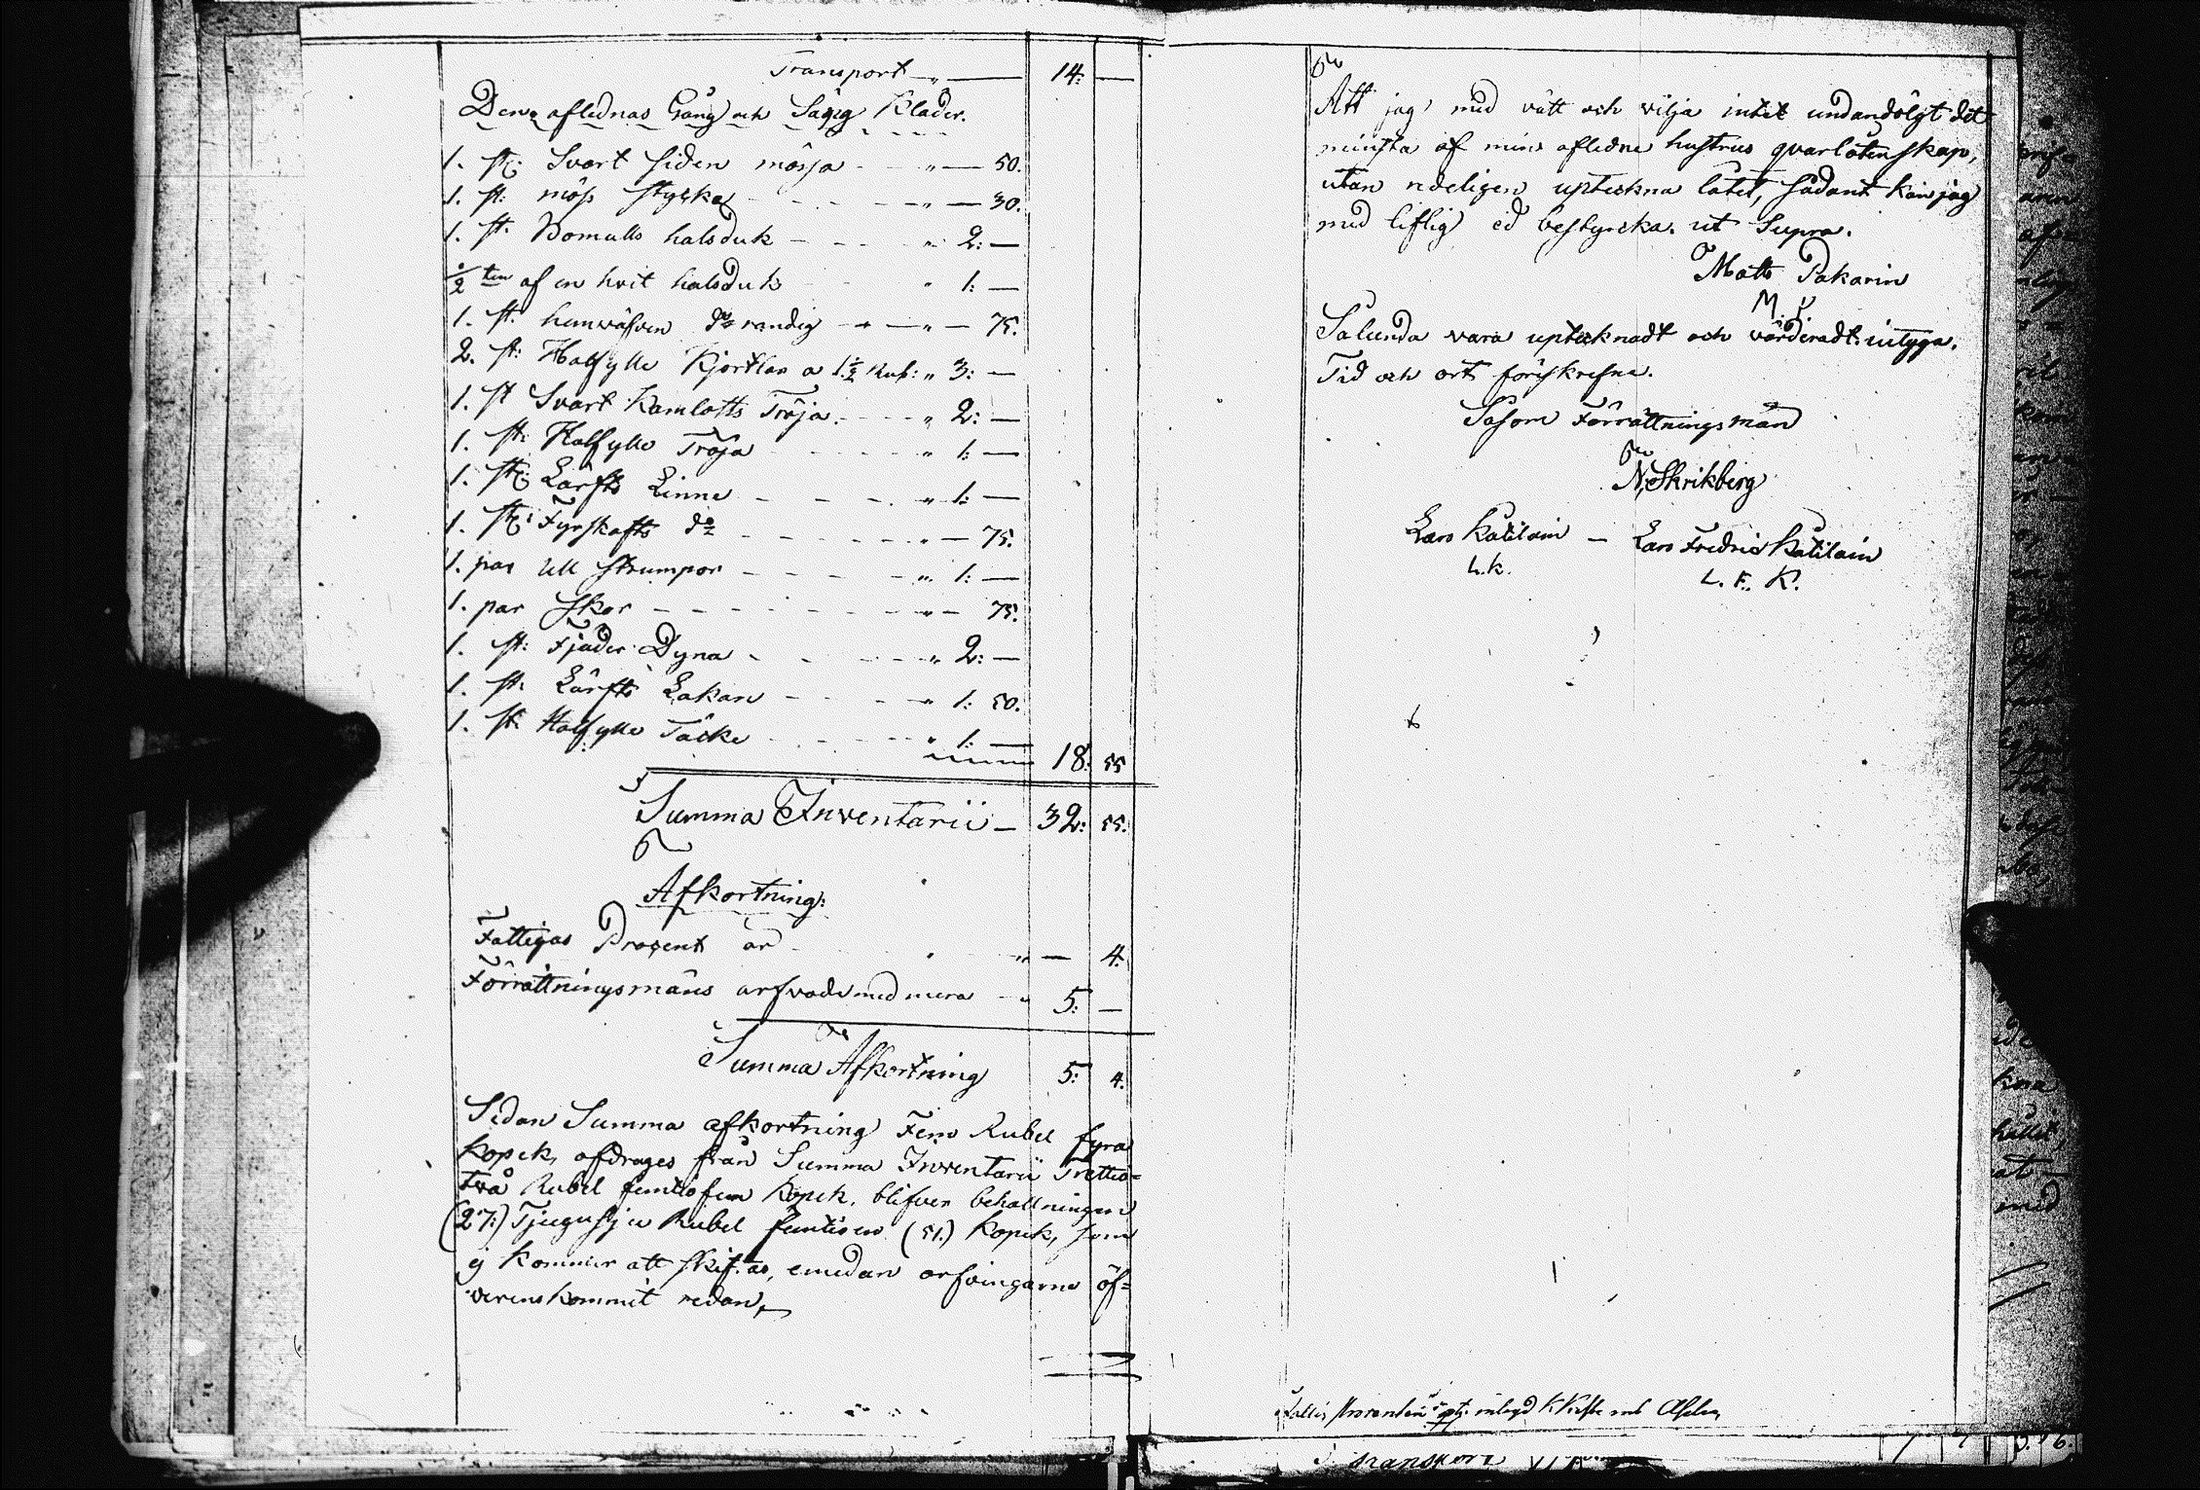 Transport „ — 14: —
Den aflednas Gång och Säng Kläder.
1. st: Svart Siden mössa „ — 50.
1. st: möss stycke „ — 30.
1. st: Bomulls halsduk „ 2: —
½ ten af en hvit halsduk „ 1: —
1. st: hemväfven do randig „ — 75.
2. st: Halfylle Kjortlar a 1.½ Rub: „ 3: —
1. st Svart Kamlotts Tröja „ 2: —
1. st: Halfylle Tröja „ 1: —
1. st: Lärfts Linne „ 1: —
1. st: Fyrskafts do „ — 75.
1. par Ull strumpor „ 1: —
1. par Skor „ — 75.
1. st: Fjäder Dyna „ 2: —
1. st: Lärfts Lakan „ 1: 50.
1. st: Halfylle Täcke „ 1: —
18: 55
Summa Inventarii — 32: 55.
Afkortning:
Fattigas Procent är „ — 4.
Förrättningsmäns arfvode med mera „ 5: —
Summa Afkortning 5: 4.
Sedan Summa afkortning Fem Rubel fyra
Kopek, afdrages från Summa Inventarii Trettio=
två Rubel femtiofem Kopek, blifver behållningen
(27:) Tjugusju Rubel femtioen (51.) Kopek, som
ej kommer att skiftas, emedan arfvingarne öf=
verenskommit redan,
Att jag med vätt och vilja intet undandölgt det
minsta af min afledne hustrus qvarlåtenskap,
utan redeligen upteckna låtet, sådant kan jag
med liflig ed bestyrcka. ut Supra.
Matts Pakarin
M. P.
Sålunda vara uptecknadt och värderadt: intyga.
Tid och ort förskrefne.
Såsom Förrättningsmän
N. Skrikberg
Lars Katilain — Lars Fredric Katilain
L. K. L. F. K.